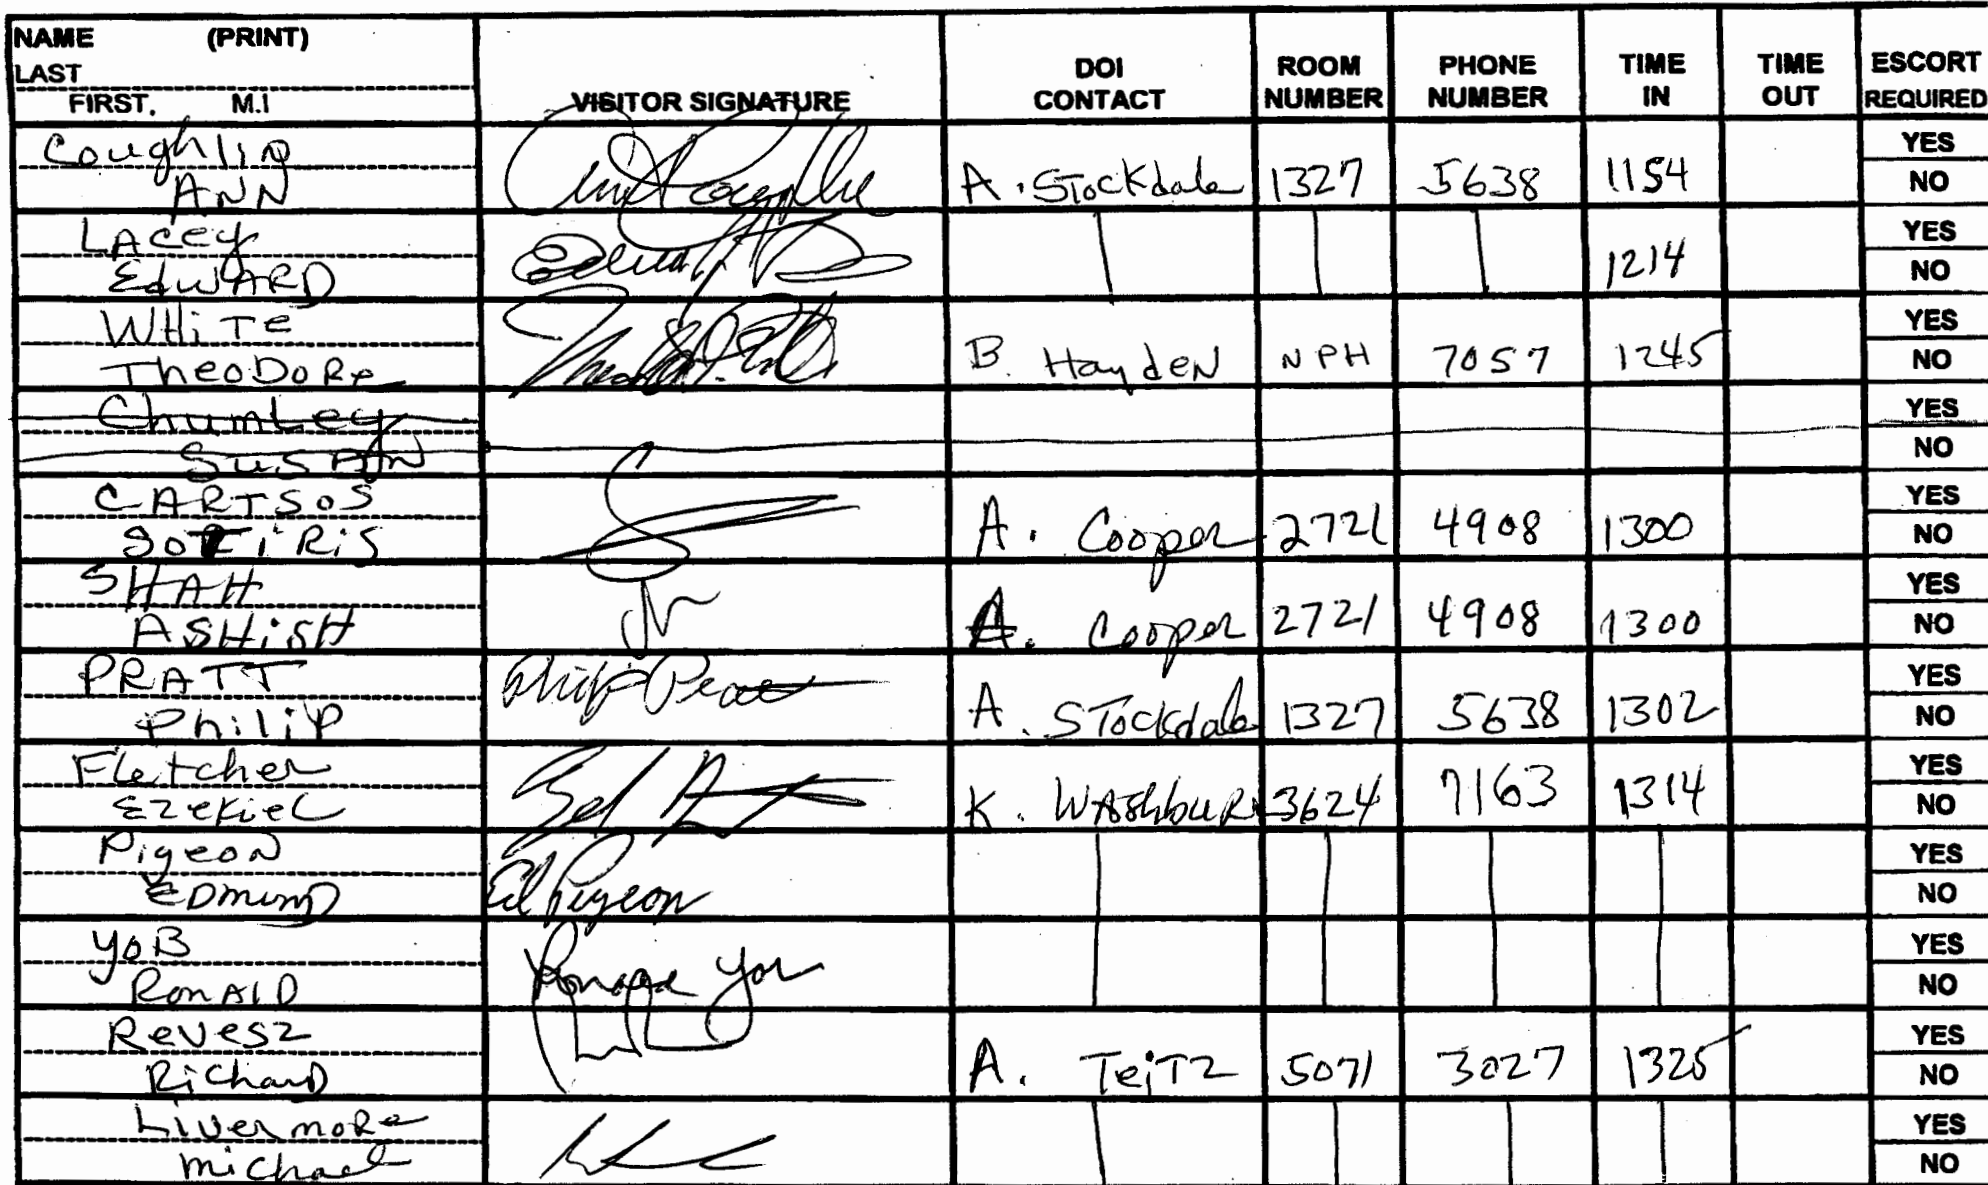 NAME (PRINT)
LAST
FIRST. M.I
VISITOR SIGNATURE
DOI CONTACT
ROOM NUMBER
PHONE NUMBER
TIME IN
TIME OUT
ESCORT REQUIRED
Coughlin
ANN
A. Stockdale 1327 5638 1154
YES
NO
LACey
EdwARD
1214
YES
NO
WHiTe
TheoDoRe
B. HaydeN NPH 7057 1245
YES
NO
Chumley
SusAN
YES
NO
CARTSOS
SOTiRiS
A. Cooper 2721 4908 1300
YES
NO
SHAH
ASHiSH
A. Cooper 2721 4908 1300
YES
NO
PRATT
PhiliP
Philip Pratt
A. STockdale 1327 5638 1302
YES
NO
Fletcher
EzekieL
K. WAShbuRn 3624 7163 1314
YES
NO
PigeoN
EDmunD
Ed Pigeon
YES
NO
YoB
RonAlD
Ronald Yob
YES
NO
Revesz
RicharD
A. TeiTz 5071 3027 1325
YES
NO
LivermoRe
michael
YES
NO